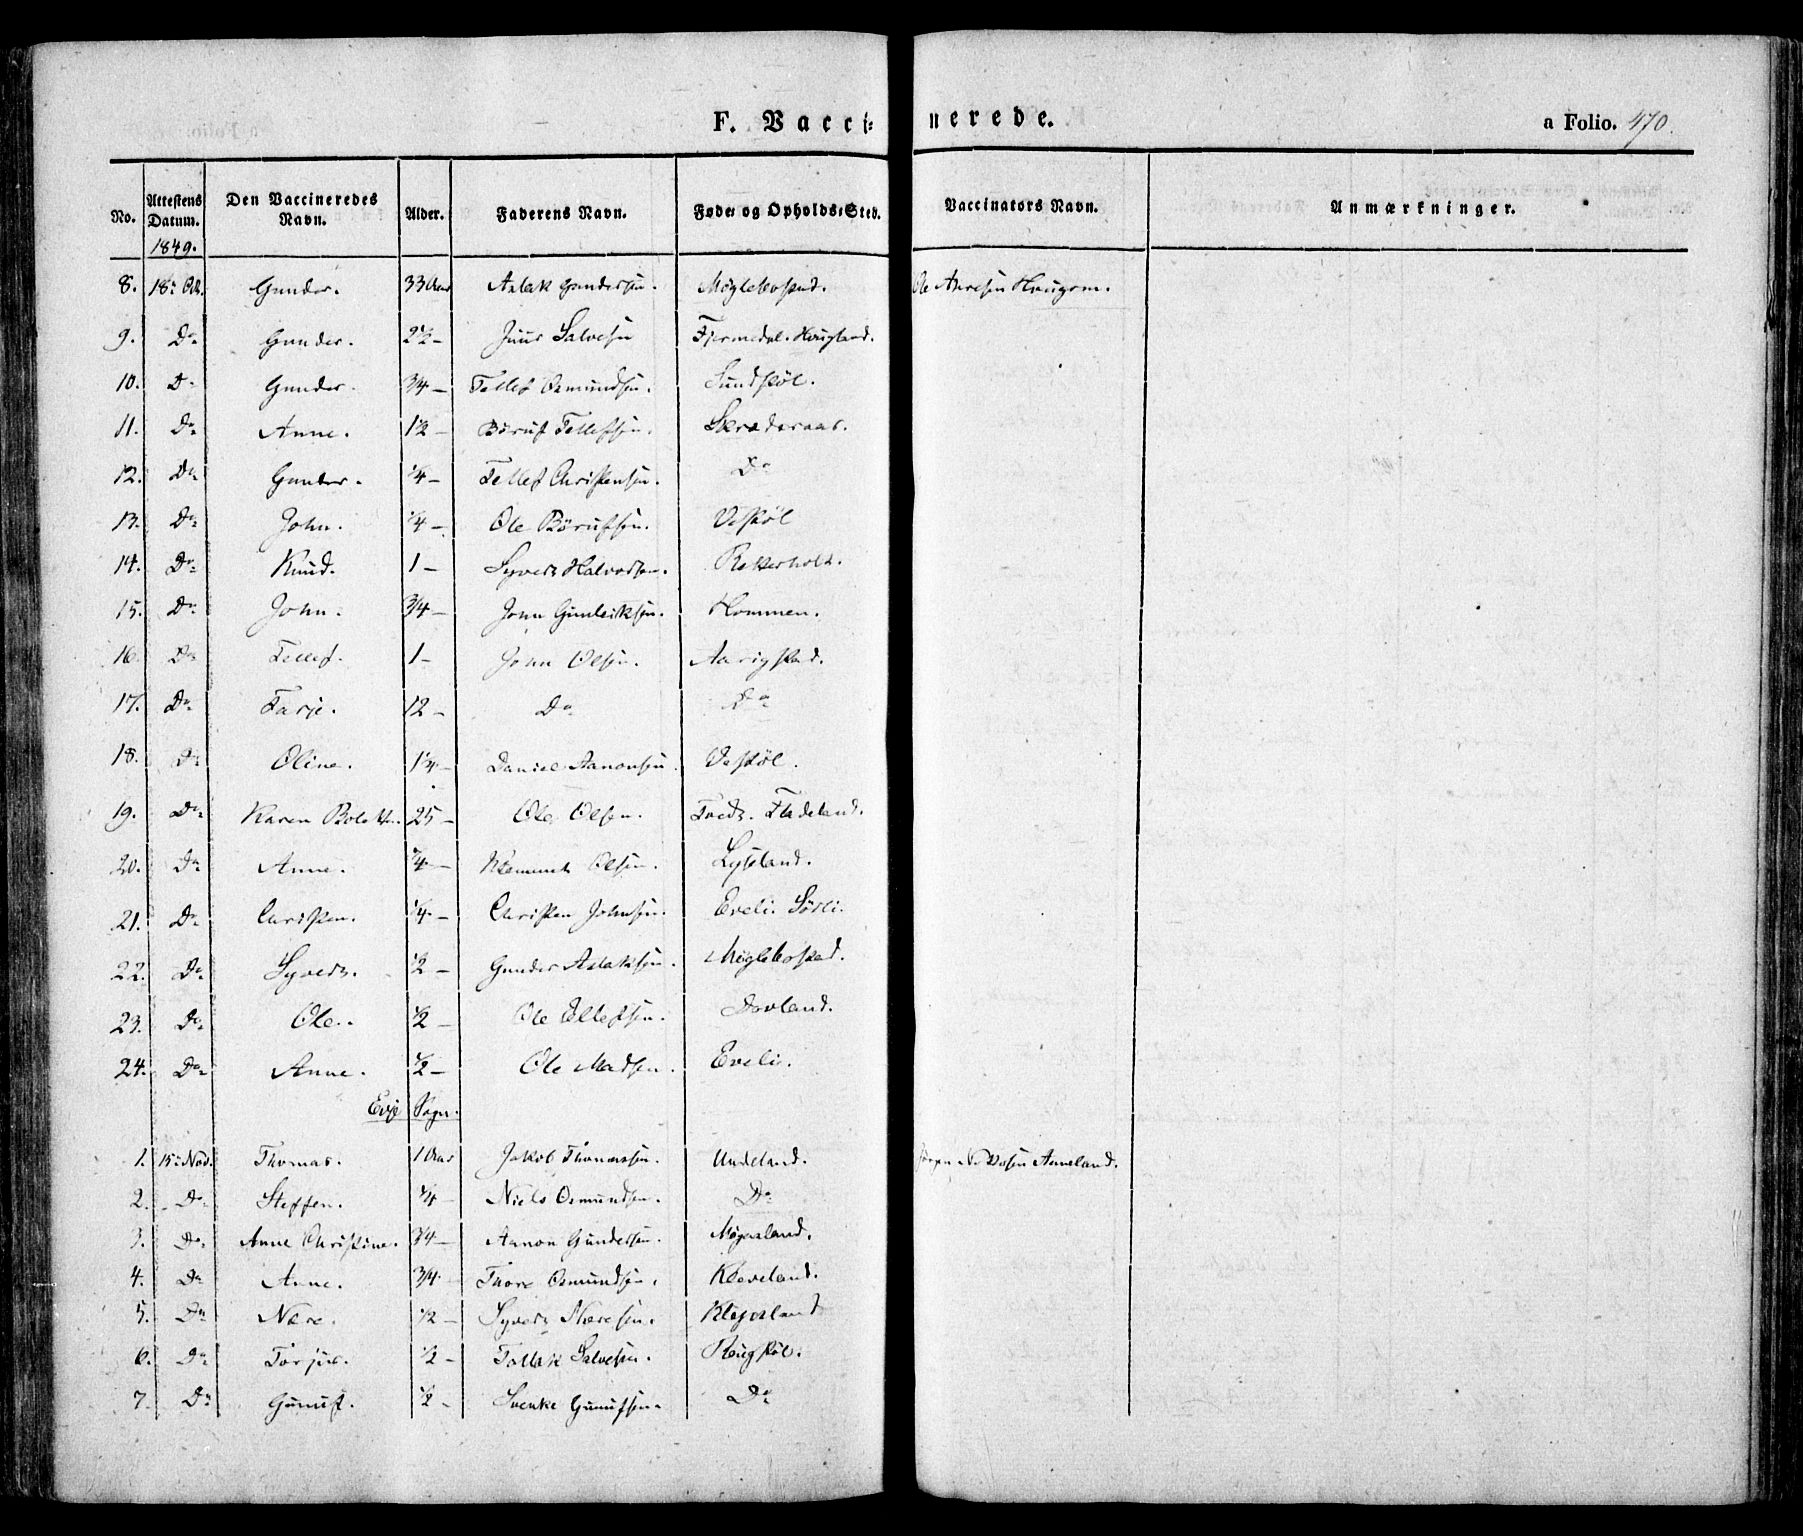 F. Vacci- nerede. a Folio. 470.
No. Attestens Datum. Den Vaccineredes Navn. Alder. Faderens Navn. Føde- og Opholds-Sted. Vaccinators Navn. Anmærkninger.
1849.
8. 18de Oct. Gunder. 33 Aar Aslak Gundersen. Møglebostad. Ole Haugom.
9. Do Gunder. 2½ – Juur Salvesen Fjermedal. Haugland.
10. Do Gunder. 3/4 – Tellef Osmundsen. Sundskøl.
11. Do Anne. 1½ – Børuf Tellefsen. Skraderaas.
12. Do Gunder. 1/4 – Tellef Christensen. Do
13. Do John. 1/4 – Ole Børufsen. Veskøl
14. Do Knud. 1 – Syvert Halvorsen. Rekerholt.
15. Do John. 3/4 – John Gunleiksen. Hommen.
16. Do Tellef. 1 – John Olsen. Aarigstad.
17. Do Tarje. 12 – Do Do
18. Do Oline. 1¼ – Daniel Aanonsen. Veskøl.
19. Do Karen 25 – Ole Olsen. Tvedt. Fladeland.
20. Do Anne. 1/4 – Klemmet Olsen. Lysland.
21. Do Christen. 1/4 – Christen Johnsen. Eveli. Sörli.
22. Do Syvert. ½ – Gunder Aslaksen. Møglebostad.
23. Do Ole. ½ – Ole Ellefsen. Dovland.
24. Do Anne. ½ – Ole Madsen. Eveli.
Evje Sogn.
1. 15de Nov. Thomas. 1 Aar Jakob Thomassen. Undeland. Aaneland.
2. Do Steffen. 1/4 – Niels Osmundsen. Do
3. Do Anne Christine. 3/4 – Aanon Gundersen. Møgarland.
4. Do Anne. 3/4 – Thore Osmundsen. Kleveland.
5. Do Nære. ½ – Syvert Næresen. Klepsland
6. Do Torjus. ½ – Tollak Salvesen. Haugskøl.
7. Do Gunuf. ½ – Svenke Gunufsen. Do